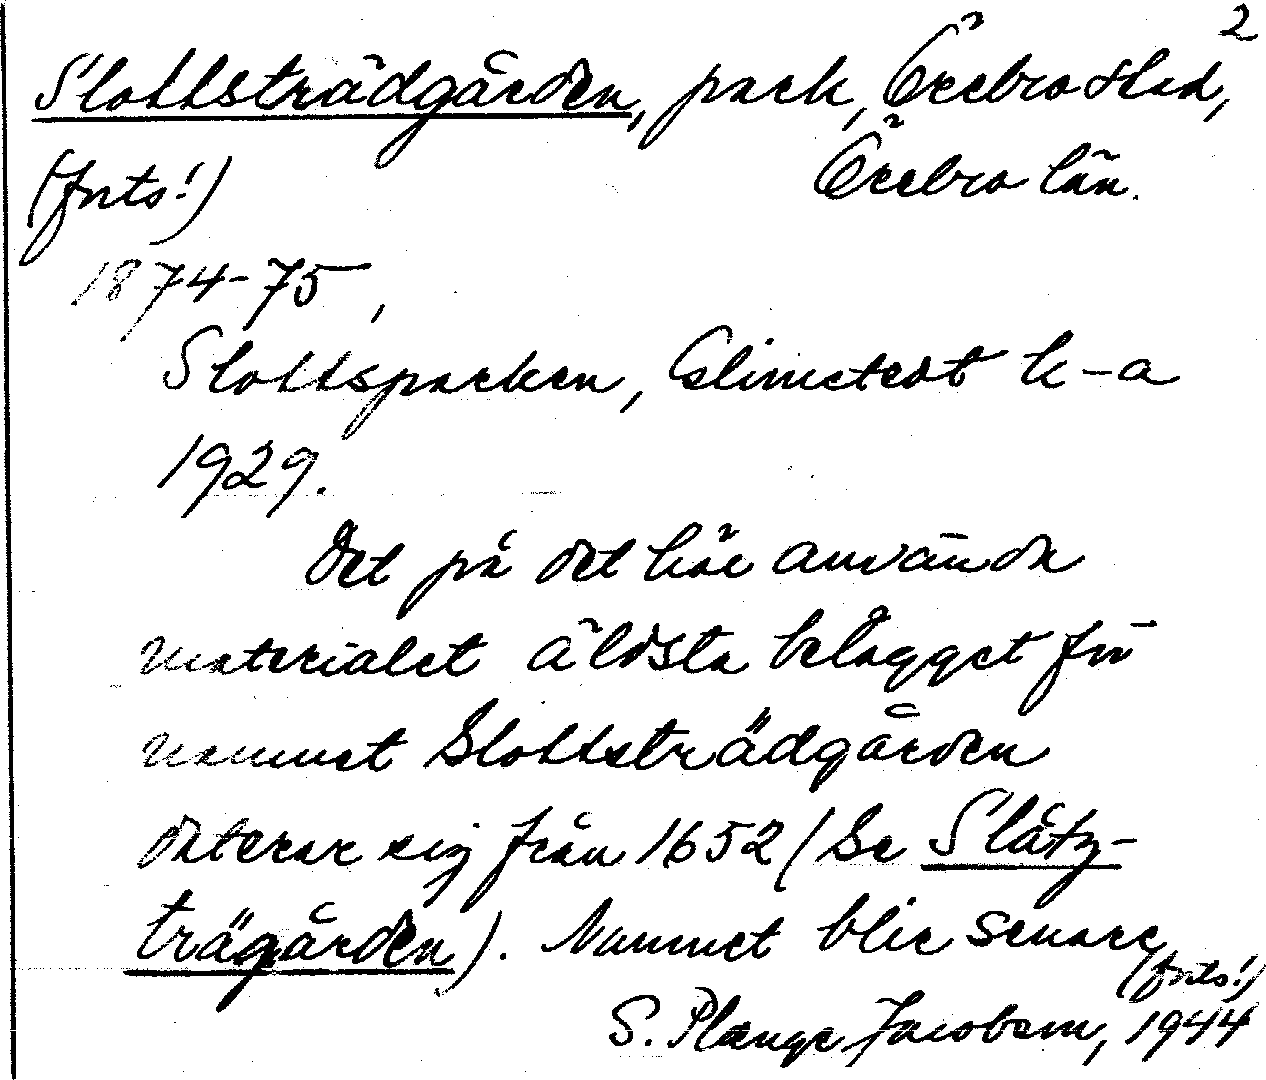 2
Slottsträdgården, park, Örebro stad,
(forts!) Örebro län.
1874-75,
Slottsparken, Glimstedt k-a
1929.
Det på det här använda
materialet äldsta belägget för
namnet Slottsträdgården
daterar sig från 1652 (Se Slåtz-
trägården). Namnet blir senare
(forts!)
S. Plænge Jacobsen, 1944